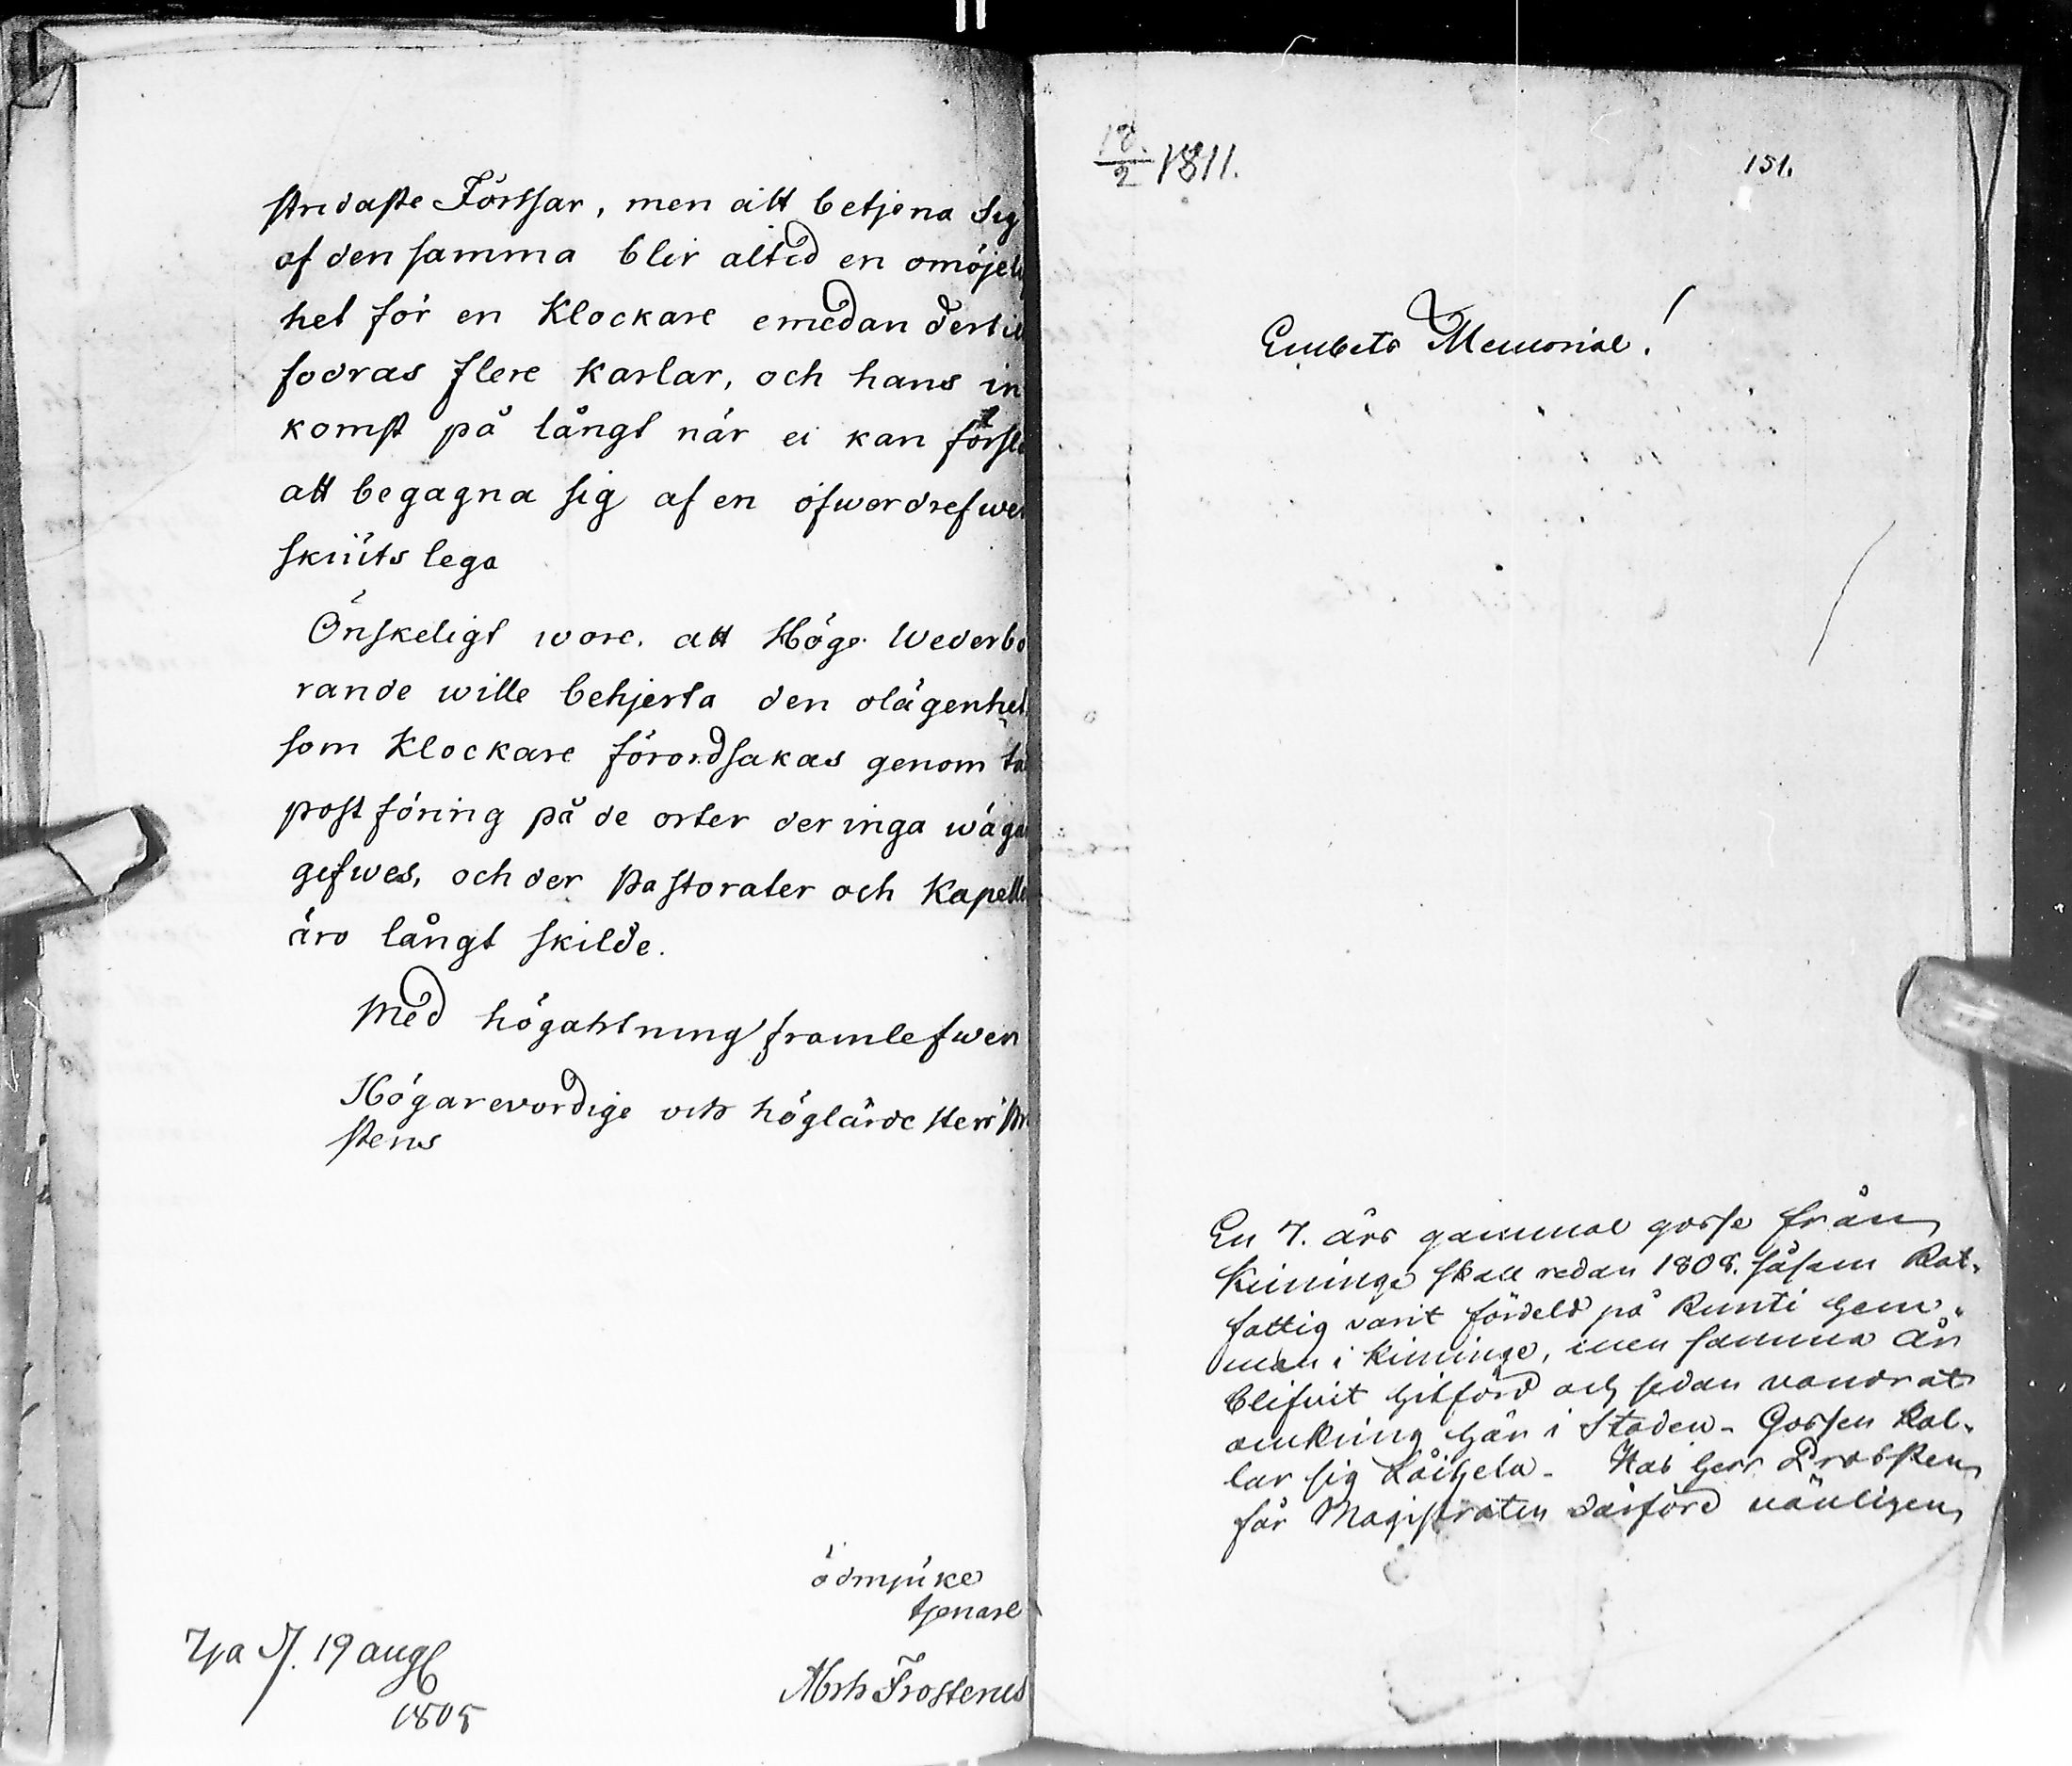 stridaste Forssar, men att betjena Sig
af den samma blir altid en omöjel
het för en Klockare emedan dertil
fodras flere karlar, och hans in
komst på långt när ei kan förslå
att begagna sig af en öfwerdrefwen
skiüts lega
Önskeligt wore, att Höge Wederbö
rande wille behjerta den olägenhet
som Klockare förordsakas genom
postföring på de orter der inga wägar
gefwes, och der Pastorater och Kapell
äro långt skilde.
Med högahtning framlefwer
Högarevördige och höglärde Herr Pr
stens
ödmjüke
tjenare
Ija d. 19 aug
1805
Abrh Frosterus
18/2 1811.
151.
Embets Memorial!
En 7. års gammal gosse från
Kiminge skall redan 1808. såsom Rot-
fattig varit fördeld på Runti hem-
man i Kiminge, men samma år
blifvit hitförd och sedan vandrat
omkring här i Staden. Gossen kal-
lar sig Håkan Herr Probsten
får Magistraten därföre vänligen